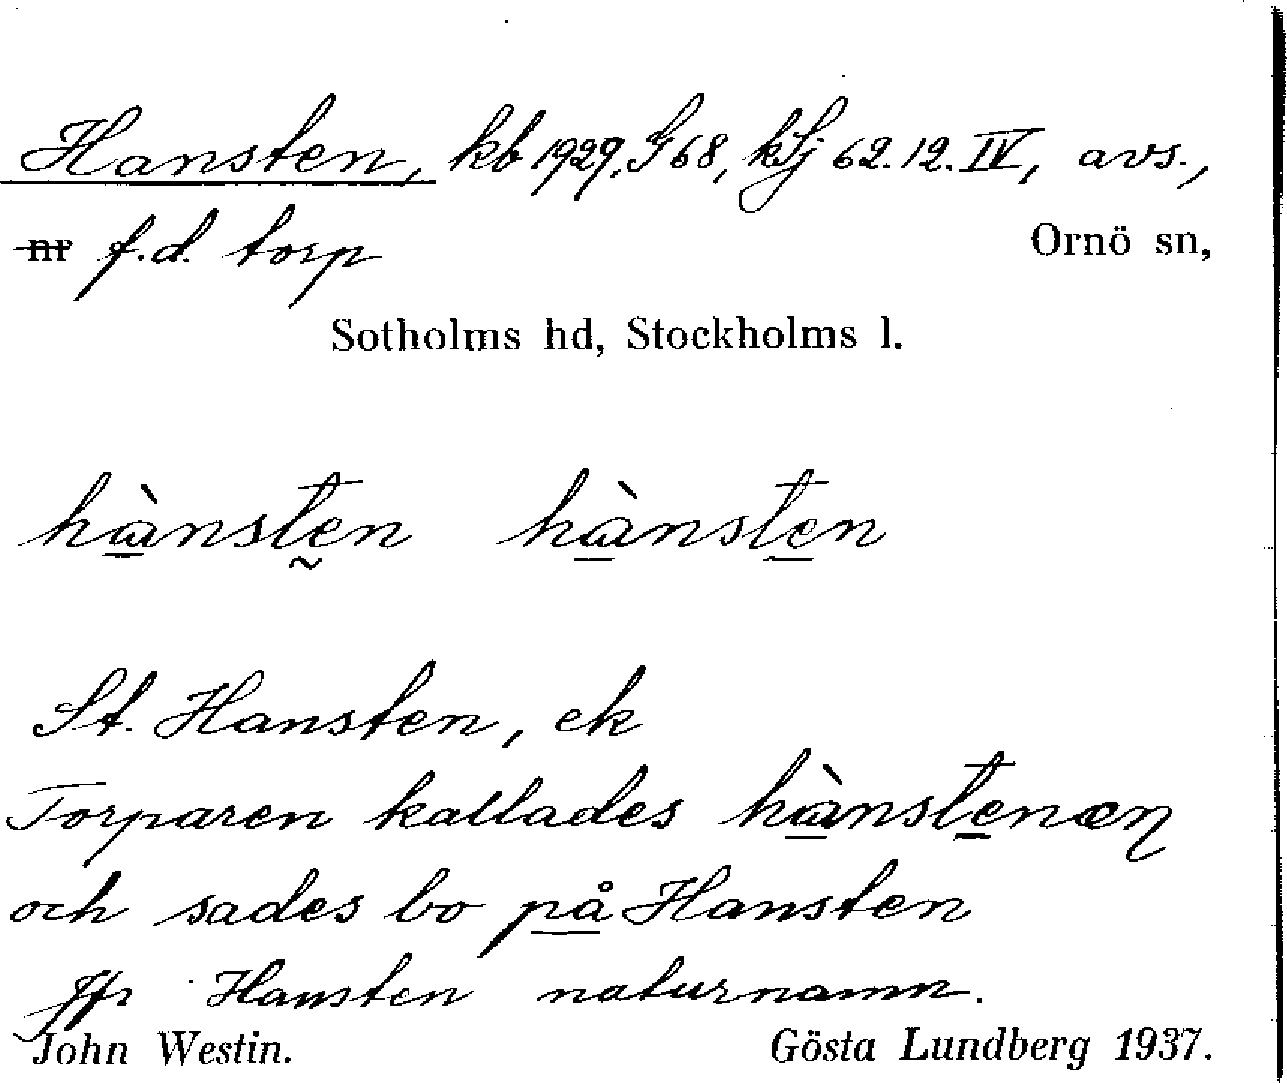 Hansten, kb 1929, G 68, kSj 62.12.IV, avs.,
nr f.d. torp Ornö sn,
Sotholms hd, Stockholms l.
hànsten hànsten
St. Hansten, ek
Torparen kallades hànstenæn
och sades bo på Hansten
Jfr Hansten naturnamn.
John Westin. Gösta Lundberg 1937.